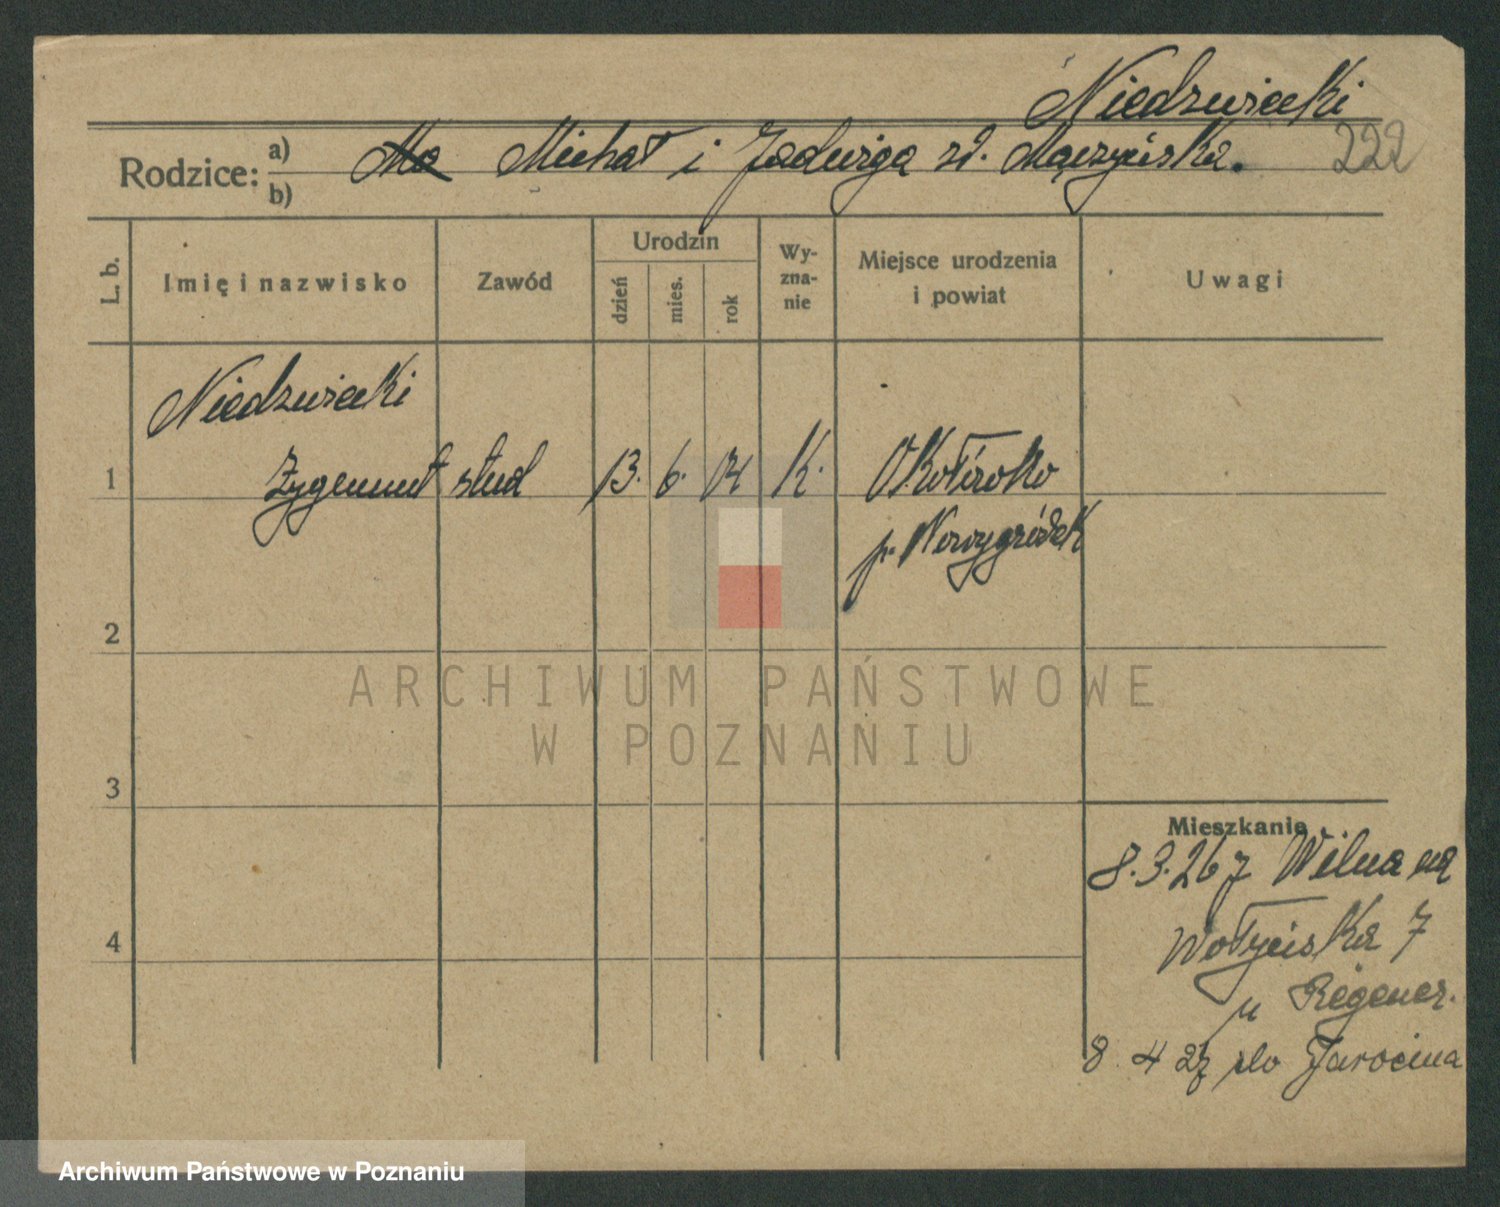 Niedzwiecki
222
Rodzice: a) Ma Michał i Jadwiga zd. Mączyńska.
b)
L. b. Imię i nazwisko Zawód Urodzin dzień mies. rok Wyznanie Miejsce urodzenia i powiat Uwagi
Niedzwiecki
1 Zygmunt stud 13. 6. 04 K.
p. Nowygródek
2
ARCHIWUM PAŃSTWOWE
W POZNANIU
3
Mieszkania
8.3.26 z Wilna na
4
Wołyńska 7
u Regener.
8 4 27 do Jarocina
Archiwum Państwowe w Poznaniu